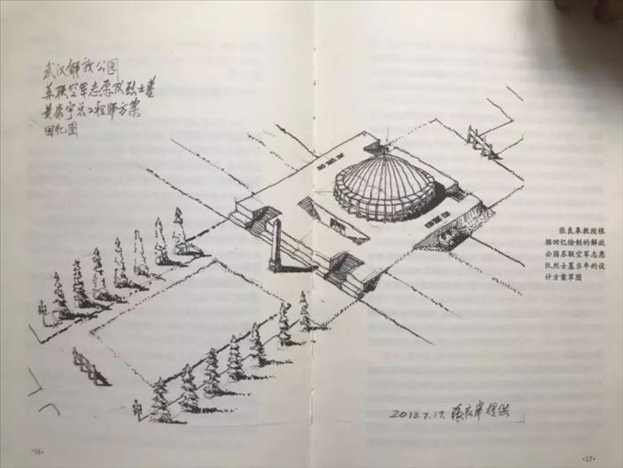 武汉解放公园
苏联空军志愿队烈士墓
总工程师方案
回忆图
张良皋教授根
据回忆绘制的解放
公园苏联空军志愿
队烈士墓当年的设
计方案草图
2012.7.17. 张良皋提供
·16·
·17·